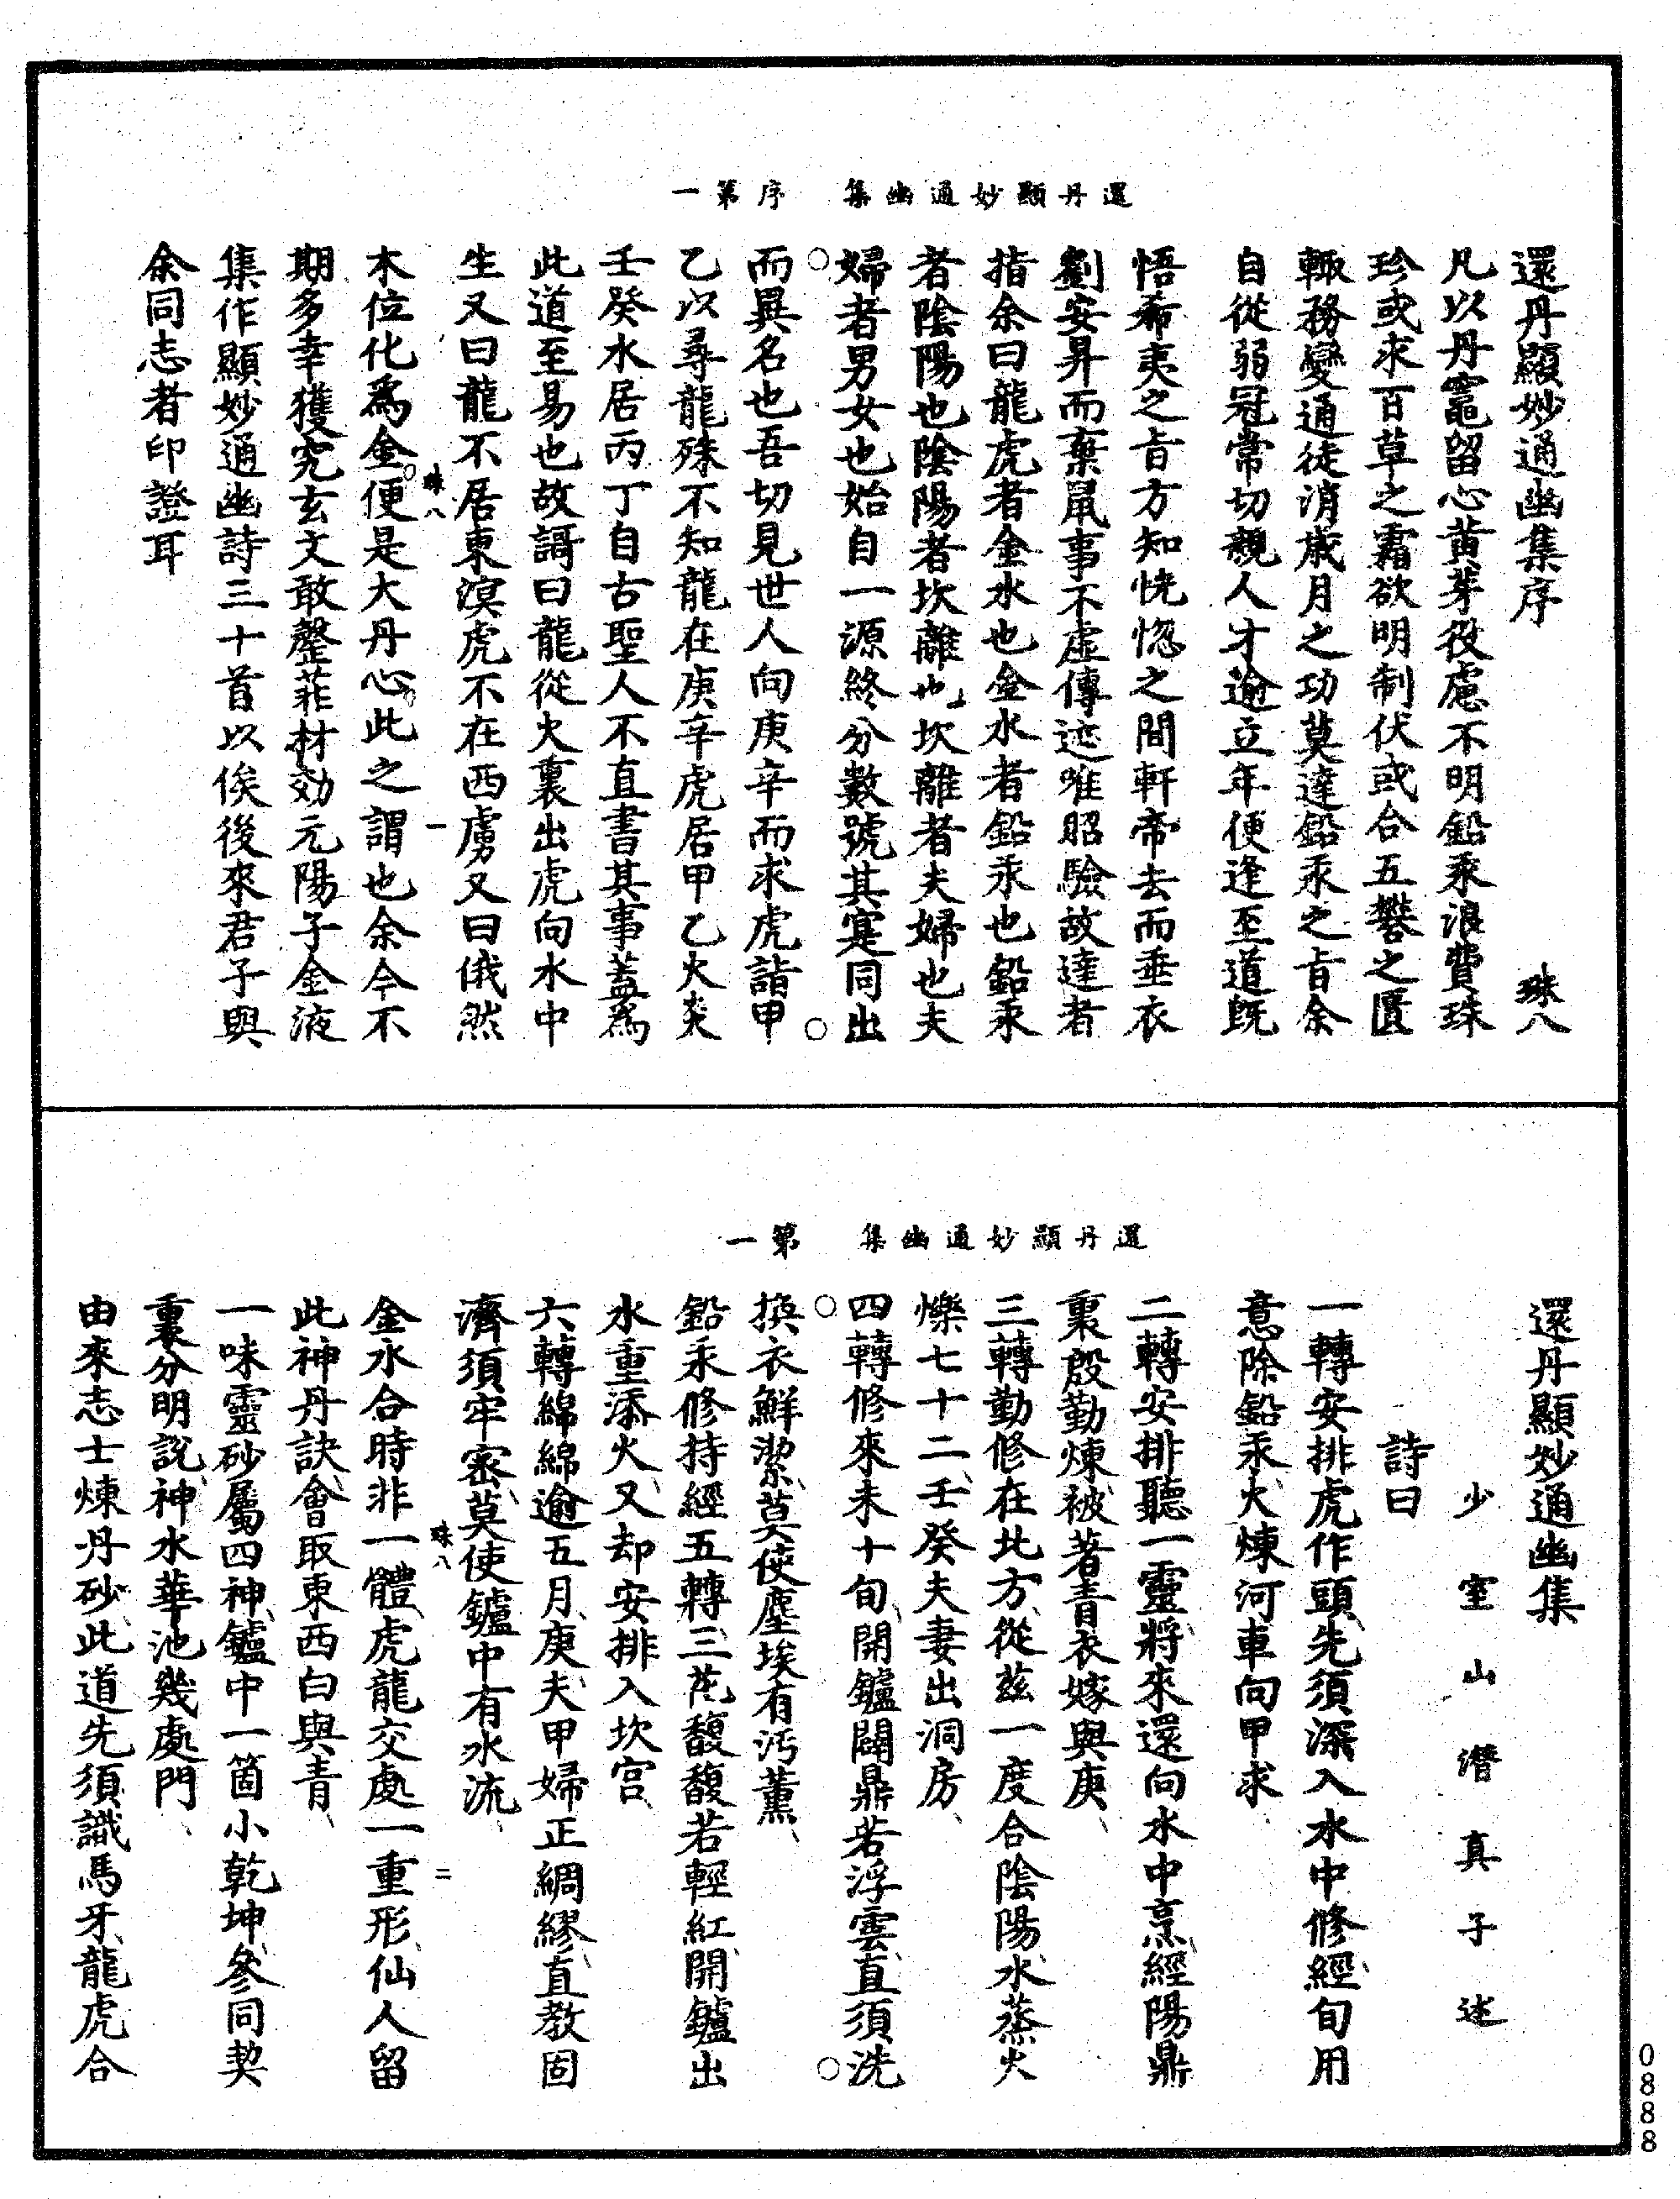 還丹顯妙通幽集　序　第一
還丹顯妙通幽集序　珠八
凡以丹竈留心黃芽役慮不明鉛汞浪費珠
珍或求百草之霜欲明制伏或合五礬之匱
輙務變通徒消歲月之功莫達鉛汞之旨余
自從弱冠常切親人才逾立年便逢至道旣
悟希夷之旨方知恍惚之間軒帝去而垂衣
劉安昇而棄鼠事不虛傳迹唯昭驗故達者
指余曰龍虎者金水也金水者鉛汞也鉛汞
者陰陽也陰陽者坎離也坎離者夫婦也夫
婦者男女也始自一源終分數號其寔同出
而異名也吾切見世人向庚辛而求虎詣甲
乙以尋龍殊不知龍在庚辛虎居甲乙火炎
壬癸水居丙丁自古聖人不直書其事蓋爲
此道至易也故謌曰龍從火裏出虎向水中
生又曰龍不居東溟虎不在西虜又曰俄然
珠八　一
木位化爲金便是大丹心此之謂也余今不
期多幸獲究玄文敢罄菲材効元陽子金液
集作顯妙通幽詩三十首以俟後來君子與
余同志者印證耳
還丹顯妙通幽集　第一
還丹顯妙通幽集
少室山潛真子述
詩曰
一轉安排虎作頭、先須深入水中修、經旬用
意除鉛汞、火煉河車向甲求、
二轉安排聽一靈、將來還向水中烹、經陽鼎
裏殷勤煉、被著青衣嫁與庚、
三轉勤修在北方、從茲一度合陰陽、水蒸火
爍七十二、壬癸夫妻出洞房、
四轉修來未十旬、開鑪闢鼎若浮雲、直須洗
換衣鮮潔、莫使塵埃有污薰、
鉛汞修持經五轉、三花馥馥若輕紅、開鑪出
水重添火、又却安排入坎宮、
六轉綿綿逾五月、庚夫甲婦正綢繆、直教固
濟須牢密、莫使鑪中有水流、
珠八　二
金水合時非一體、虎龍交處一重形、仙人留
此神丹訣、會取東西白與青、
一味靈砂屬四神、鑪中一箇小乾坤、參同契
裏分明說、神水華池幾處門、
由來志士煉丹砂、此道先須識馬牙、龍虎合
0888